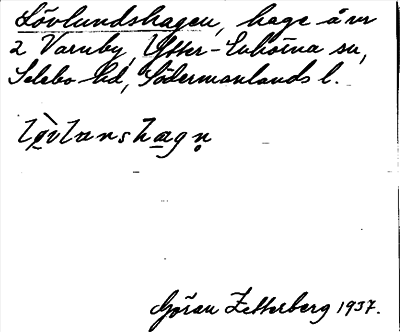 Lövlundshagen, hage å nr
2 Varnby, Ytter-Enhörna sn,
Selebo hd, Södermanlands l.
lö̀vlanshagn̥
Göran Zetterberg 1937.